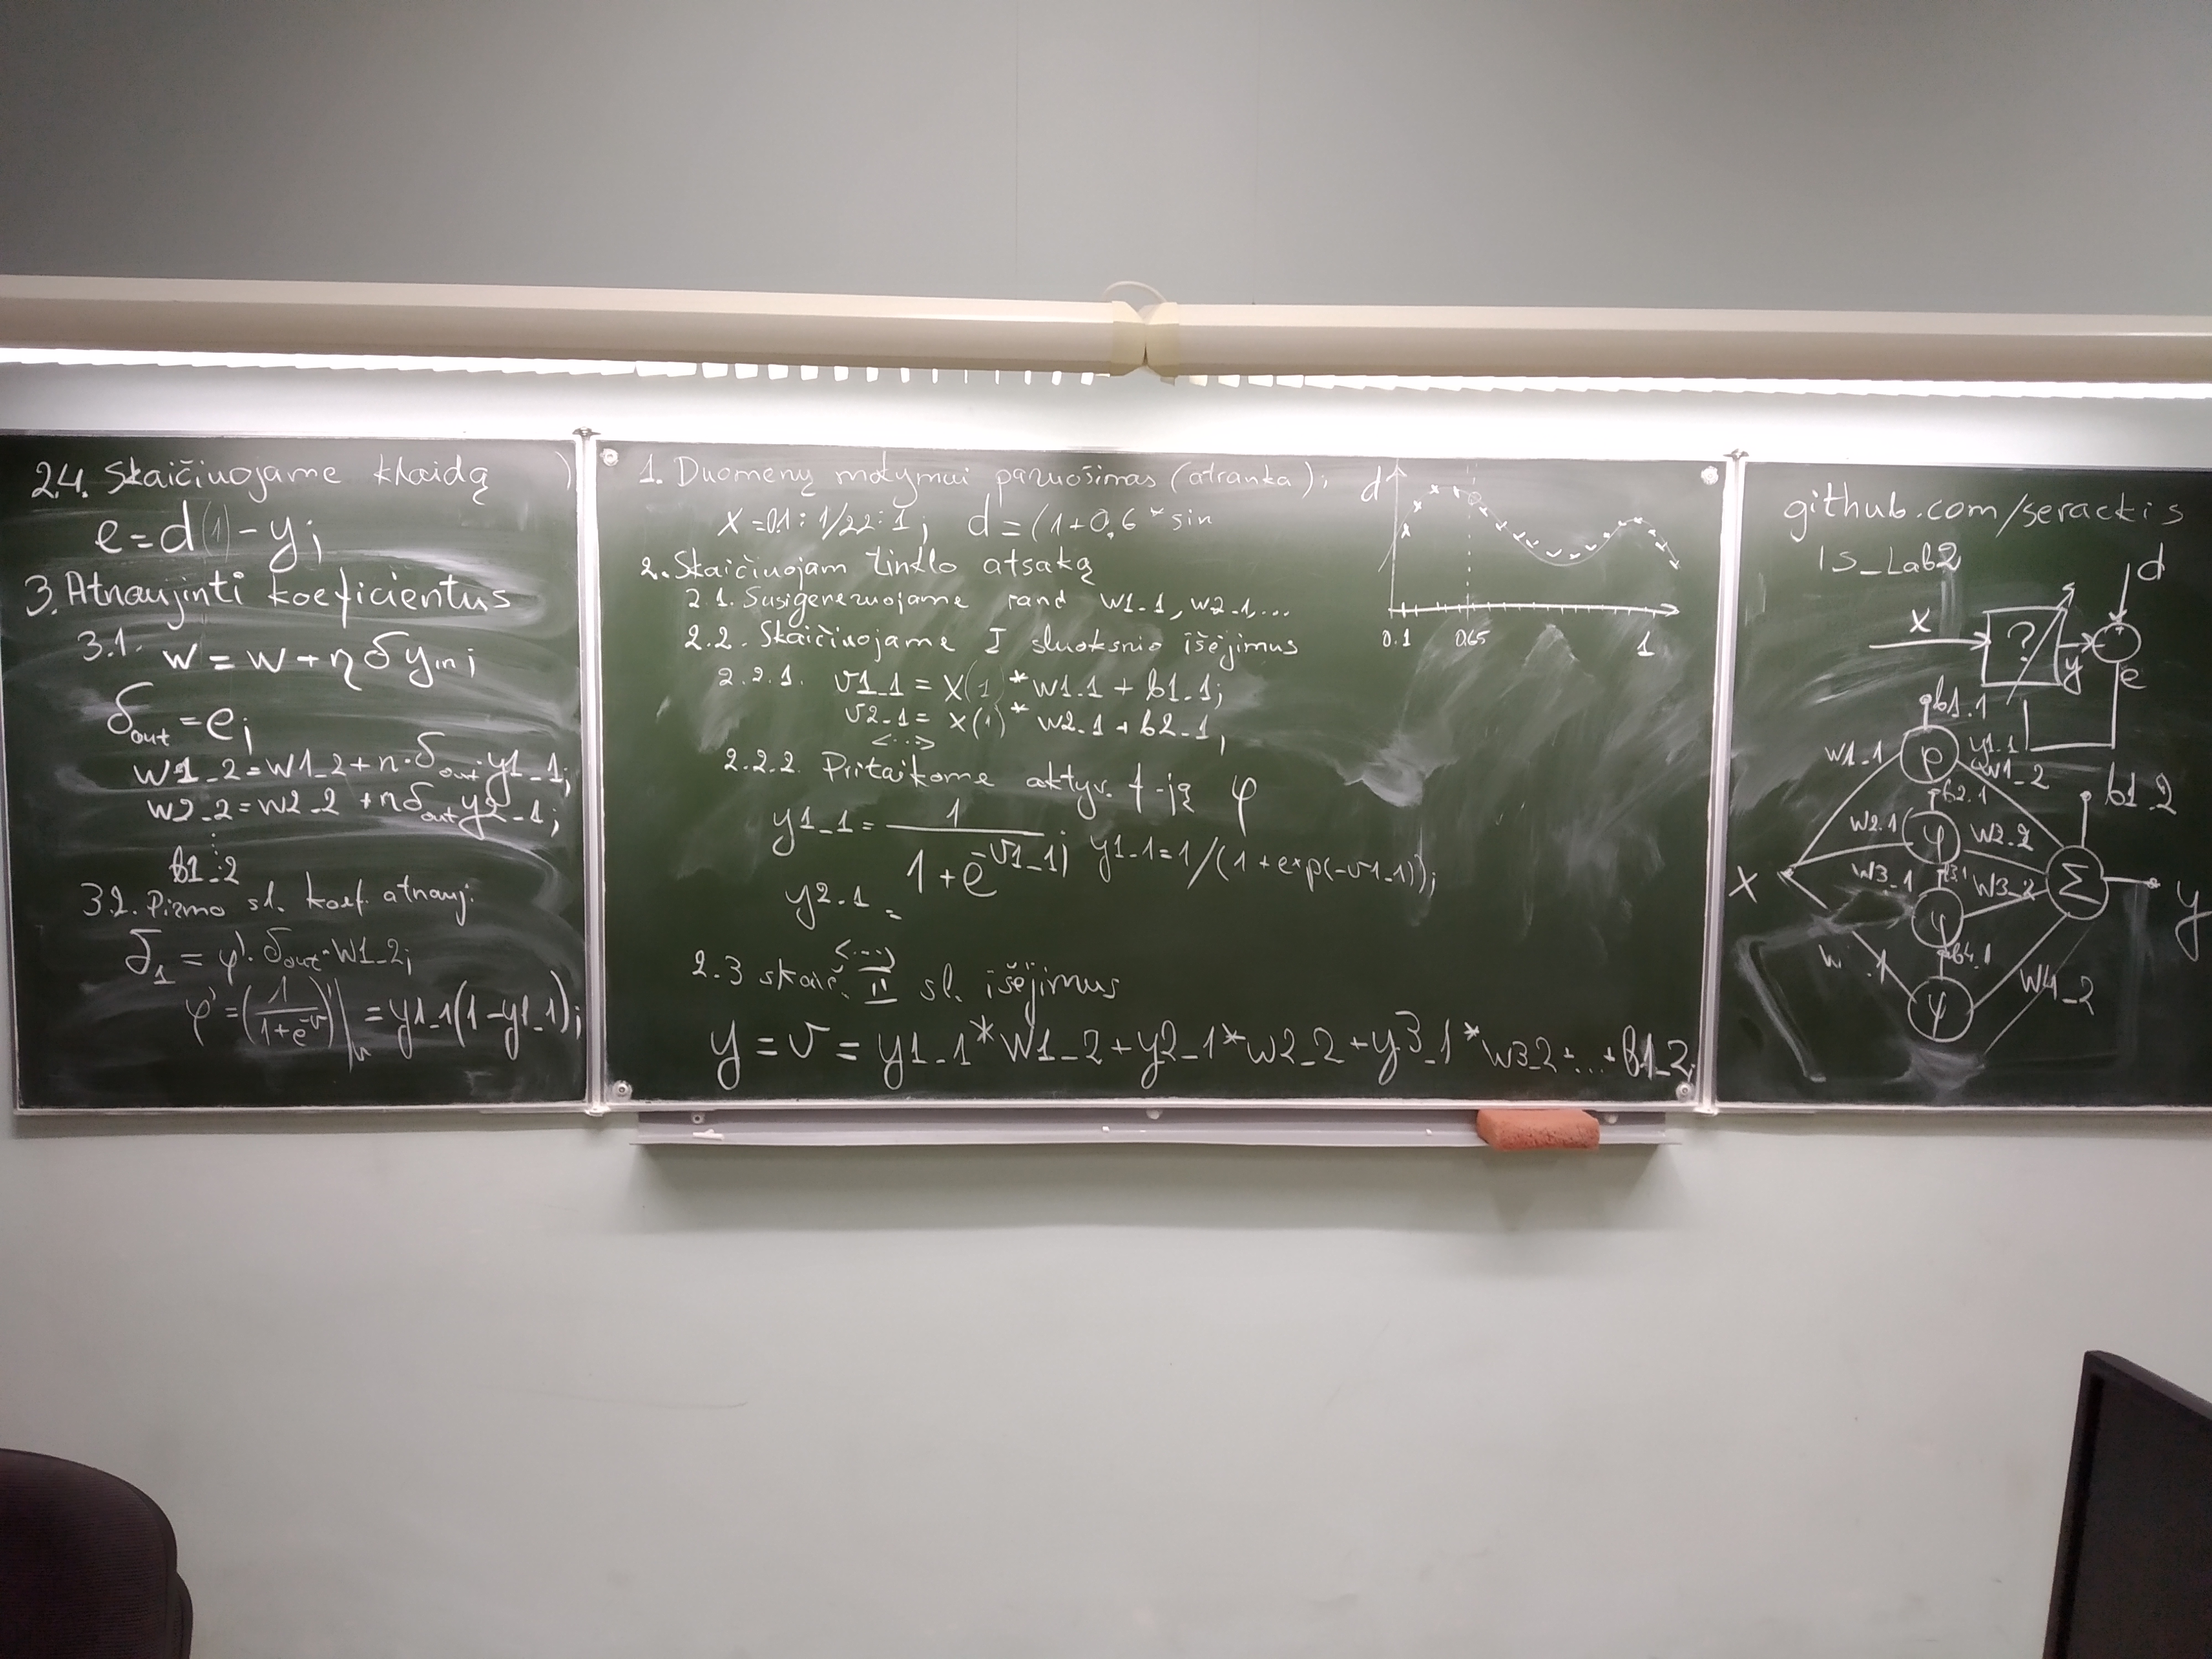 2.4. Skaičiuojame klaidą
e = d(1) - y;
3. Atnaujinti koeficientus
3.1. w = w + η δ y_in;
δ_out = e;
w1_2 = w1_2 + n·δ_out·y1_1;
w2_2 = w2_2 + ηδ_out y2_1;
⋮
b1_2
3.2. Pirmo sl. koef. atnauj.
δ_1 = φ'·δ_out·w1_2;
φ' = (1/(1+e^-v))'|_v = y1_1(1-y1_1);
1. Duomenų mokymui paruošimas (atranka);
x = 0.1 : 1/22 : 1; d = (1 + 0.6 * sin
2. Skaičiuojam tinklo atsaką
2.1. Susigeneruojame rand w1_1, w2_1, ...
2.2. Skaičiuojame I sluoksnio išėjimus
2.2.1. v1_1 = x(1) * w1_1 + b1_1;
v2_1 = x(1) * w2_1 + b2_1;
<...>
2.2.2. Pritaikome aktyv. f-ją φ
y1_1 = 1/(1+e^-v1_1); y1_1 = 1/(1+exp(-v1_1));
y2_1 =
<...>
2.3 skaič. II sl. išėjimus
y = v = y1_1 * w1_2 + y2_1 * w2_2 + y3_1 * w3_2 + ... + b1_2;
d
0.1 0.65 1
github.com/serackis
IS_Lab2
d
x ? y
e
b1_1
w1_1 φ y1_1
w1_2
b2_1 b1_2
w2_1 φ w2_2
w3_1 b3_1 w3_2
x φ Σ y
b4_1
φ w4_2